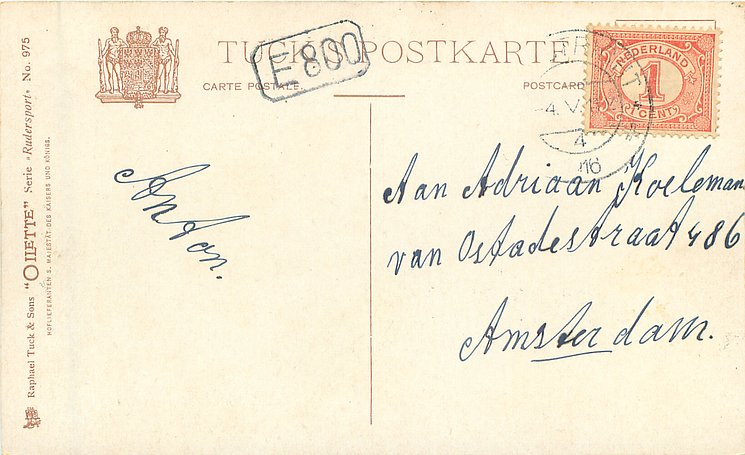 TUCK'S POSTKARTE
CARTE POSTALE. POSTCARD
E 800
NEDERLAND
1
CENT
4
16
Aan Adriaan Koeleman
van Ostadestraat 486
Amsterdam.
Anton.
Raphael Tuck & Sons "OILETTE" Serie „Rudersport" No. 975
HOFLIEFERANTEN S. MAJESTÄT DES KAISERS UND KÖNIGS.